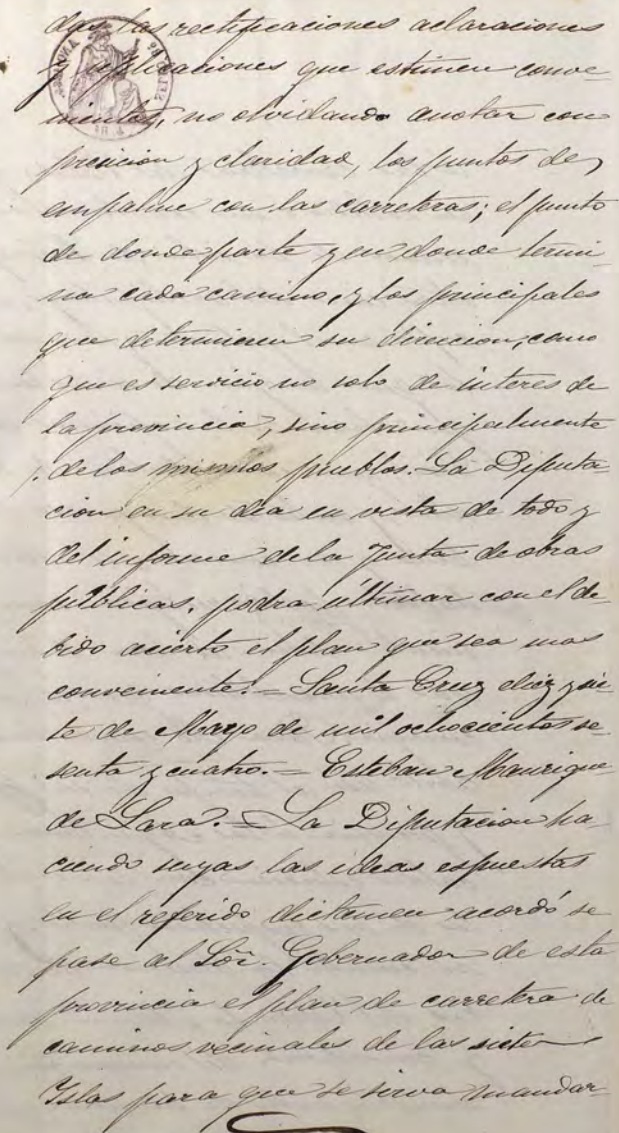 das las rectificaciones aclaraciones
y esplicaciones que estimen conve
nientes, no olvidando anotar con
precision y claridad, los puntos de
empalme con las carreteras; el punto
de donde parte y en donde termi
na cada camino, y los principales
que determinen su direccion, como
que es servicio no solo de interes de
la provincia, sino principalmente
de los mismos pueblos. La Diputa
cion en su dia en vista de todo y
del informe de la Junta de obras
públicas, podra ultimar con el de
bido acierto el plan que sea mas
conveniente. = Santa Cruz diez y sie
te de Mayo de mil ochocientos se
senta y cuatro. = Esteban Manrique
de Lara. = La Diputacion ha
ciendo suyas las ideas espuestas
en el referido dictamen acordó se
pase al Sor. Gobernador de esta
provincia el plan de carretera de
caminos vecinales de las siete
Islas para que se sirva mandar